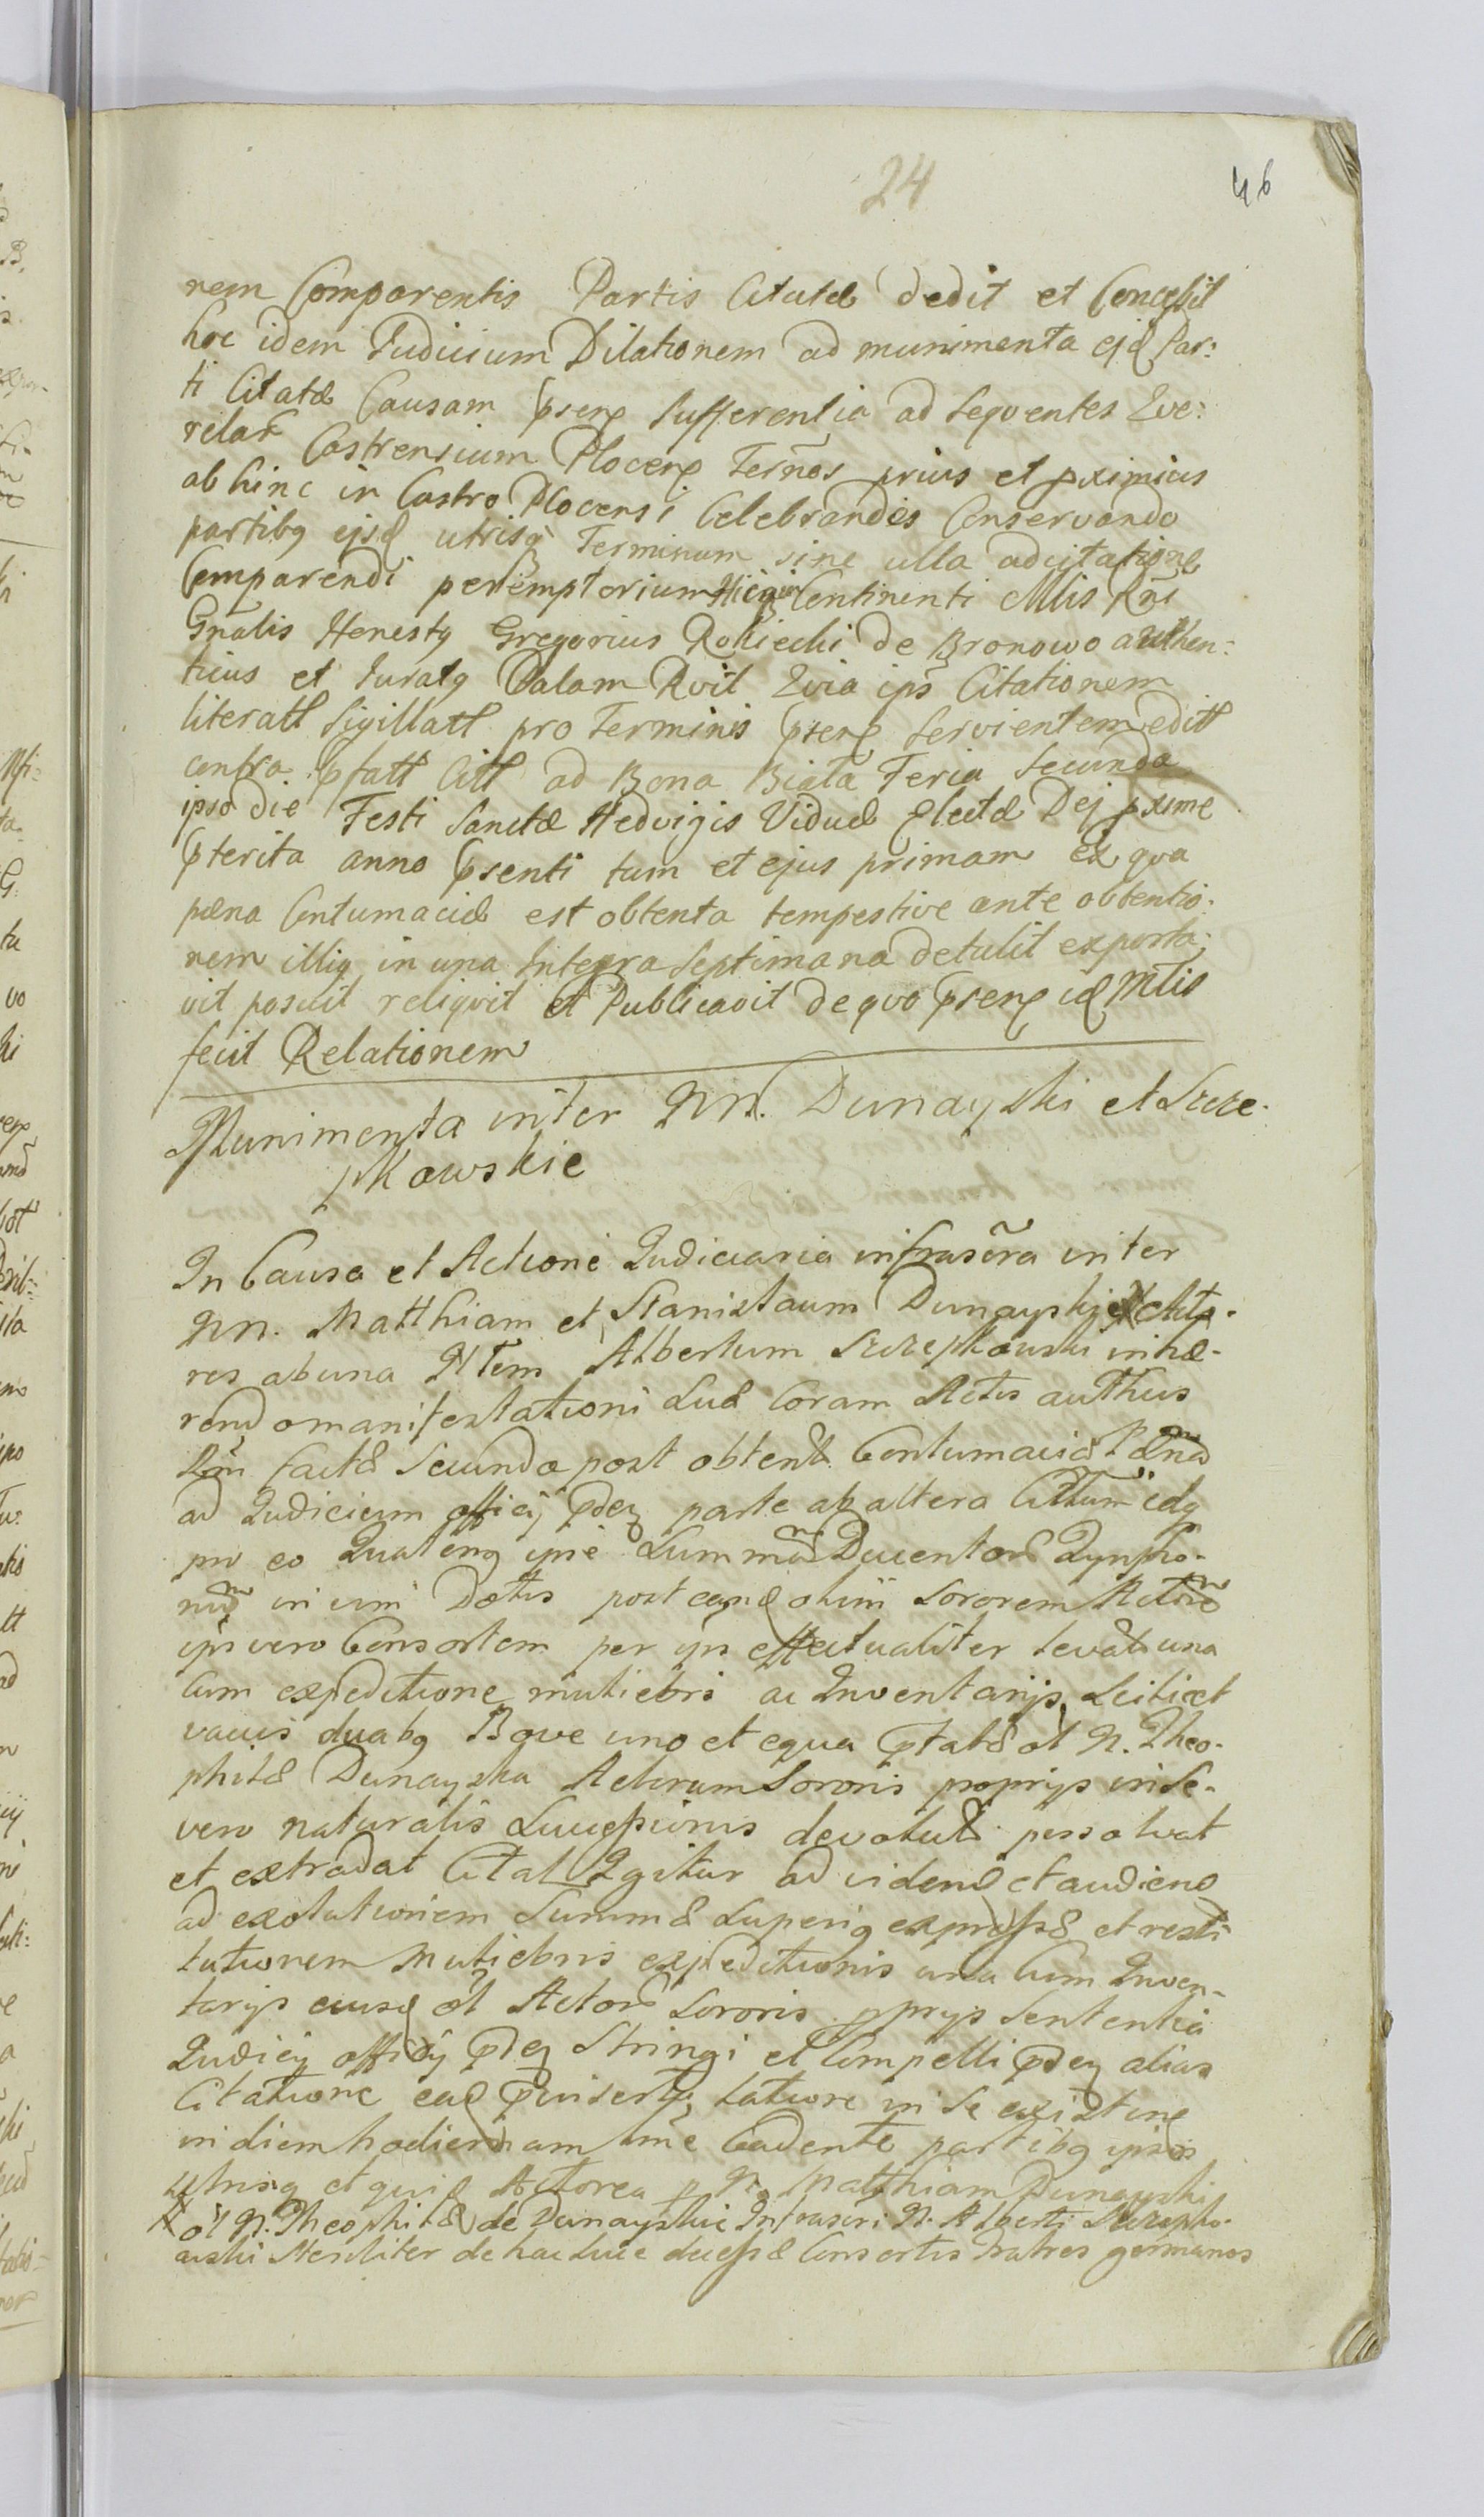 24
46
nem Comparentis Partis Citatæ dedit et Concessit
hoc idem Judicium Dilationem ad munimenta ejd Par:
ti Citatæ Causam psens sufferentia ad sequentes Que:
relar Castrensium Plocens Termos prius et pximius
abhinc in Castro Plocensi Celebrandis Conservando
partibq ejsd utrisq Terminum sine ulla adcitatione
Comparendi peremptorium Hicq in Continenti Mlis Rni
Gnalis Honestq Gregorius Rokiecki de Bronowo authen:
ticus et Juratq Palam Rvit Quia ips Citationem
literatt Sigillatt pro Terminis psens servientem editt
contra pfatt Citt ad Bona Biała Feria Secunda
ipso die Festi Sanctæ Hedvigis Viduæ Electæ Dej pxime
pterita anno psenti tum et ejus primam ex qua
pæna Contumaciæ est obtenta tempestive ante obtentio:
nem illiq in una Integra Septimana detulit exporta:
vit posuit reliqvit et Publicavit de qvo psens id Mlis
fecit Relationem
Munimenta inter GN. Dunayski et Szcze-
pkowskie
In Causa et Actione Judiciaria infrascra inter
GN. Matthiam et Stanislaum Dunayskie # Acto-
res ab una Item Albertum Szczepkowski inhæ-
rendo manifestationi suæ Coram Actis authcis
factæ Secunda post obtent Contumaciæ Pænam
ad Judicium officij pdes parte ab altera Cittum idq
pro eo Quatenq ipse Summam Ducentor Dynpho-
num in vim Dotis post eand olim Sororem Actor
ips vero Consortem per ips effectualiter levat una
Cum expeditione muliebri ac Inventarijs Scilicet
vaccis duabq Bove uno et equa pfatæ ol N. Theo-
philæ Dunayska Actorum Sororis proprijs in se-
vero naturalis Successionis devolut persolvat
et extradat Citat Igitur ad vidend et audiend
ad exolutionem Summæ superiq expressæ et resti
tutionem Muliebris expeditionis una Cum Inven-
tarijs eiusd ol Actor Sororis pprijs Sententia
Judicij officij pdes Stringi et Compelli pdes alias
Citatione ead pinserta latiore in se existens
in diem hodiernam Cadente partibq ipsis
utrisq et quid Actorea p N. Matthiam Dunayski
# ol N. Theophilæ de Dunayskie Infrascri N. Alberti Szczepko-
wski Steriliter de hac Luce decessæ Consortis fratres germanos